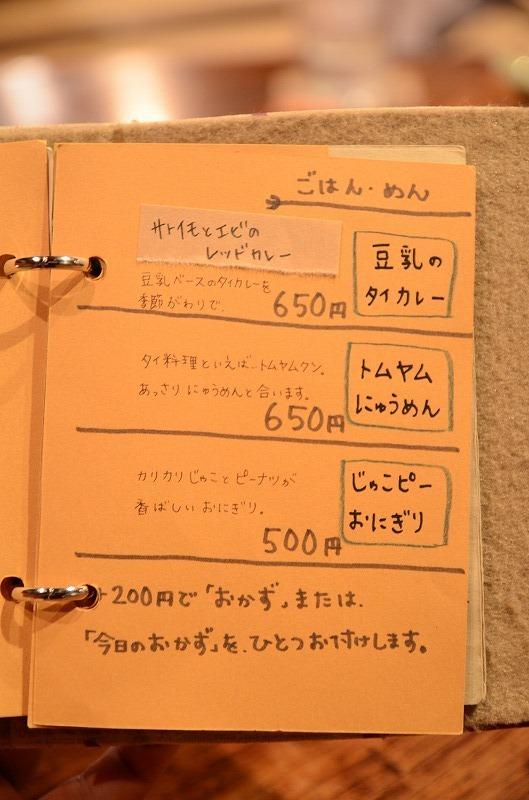 ごはん・めん
サトイモとエビの
レッドカレー
豆乳の
タイカレー
豆乳ベースのタイカレーを
季節がわりで。
650円
トムヤム
にゅうめん
タイ料理といえば…トムヤムクン。
あっさりにゅうめんと合います。
650円
じゃこピー
おにぎり
カリカリじゃことピーナツが
香ばしいおにぎり。
500円
+200円で「おかず」または、
「今日のおかず」を、ひとつお付けします。